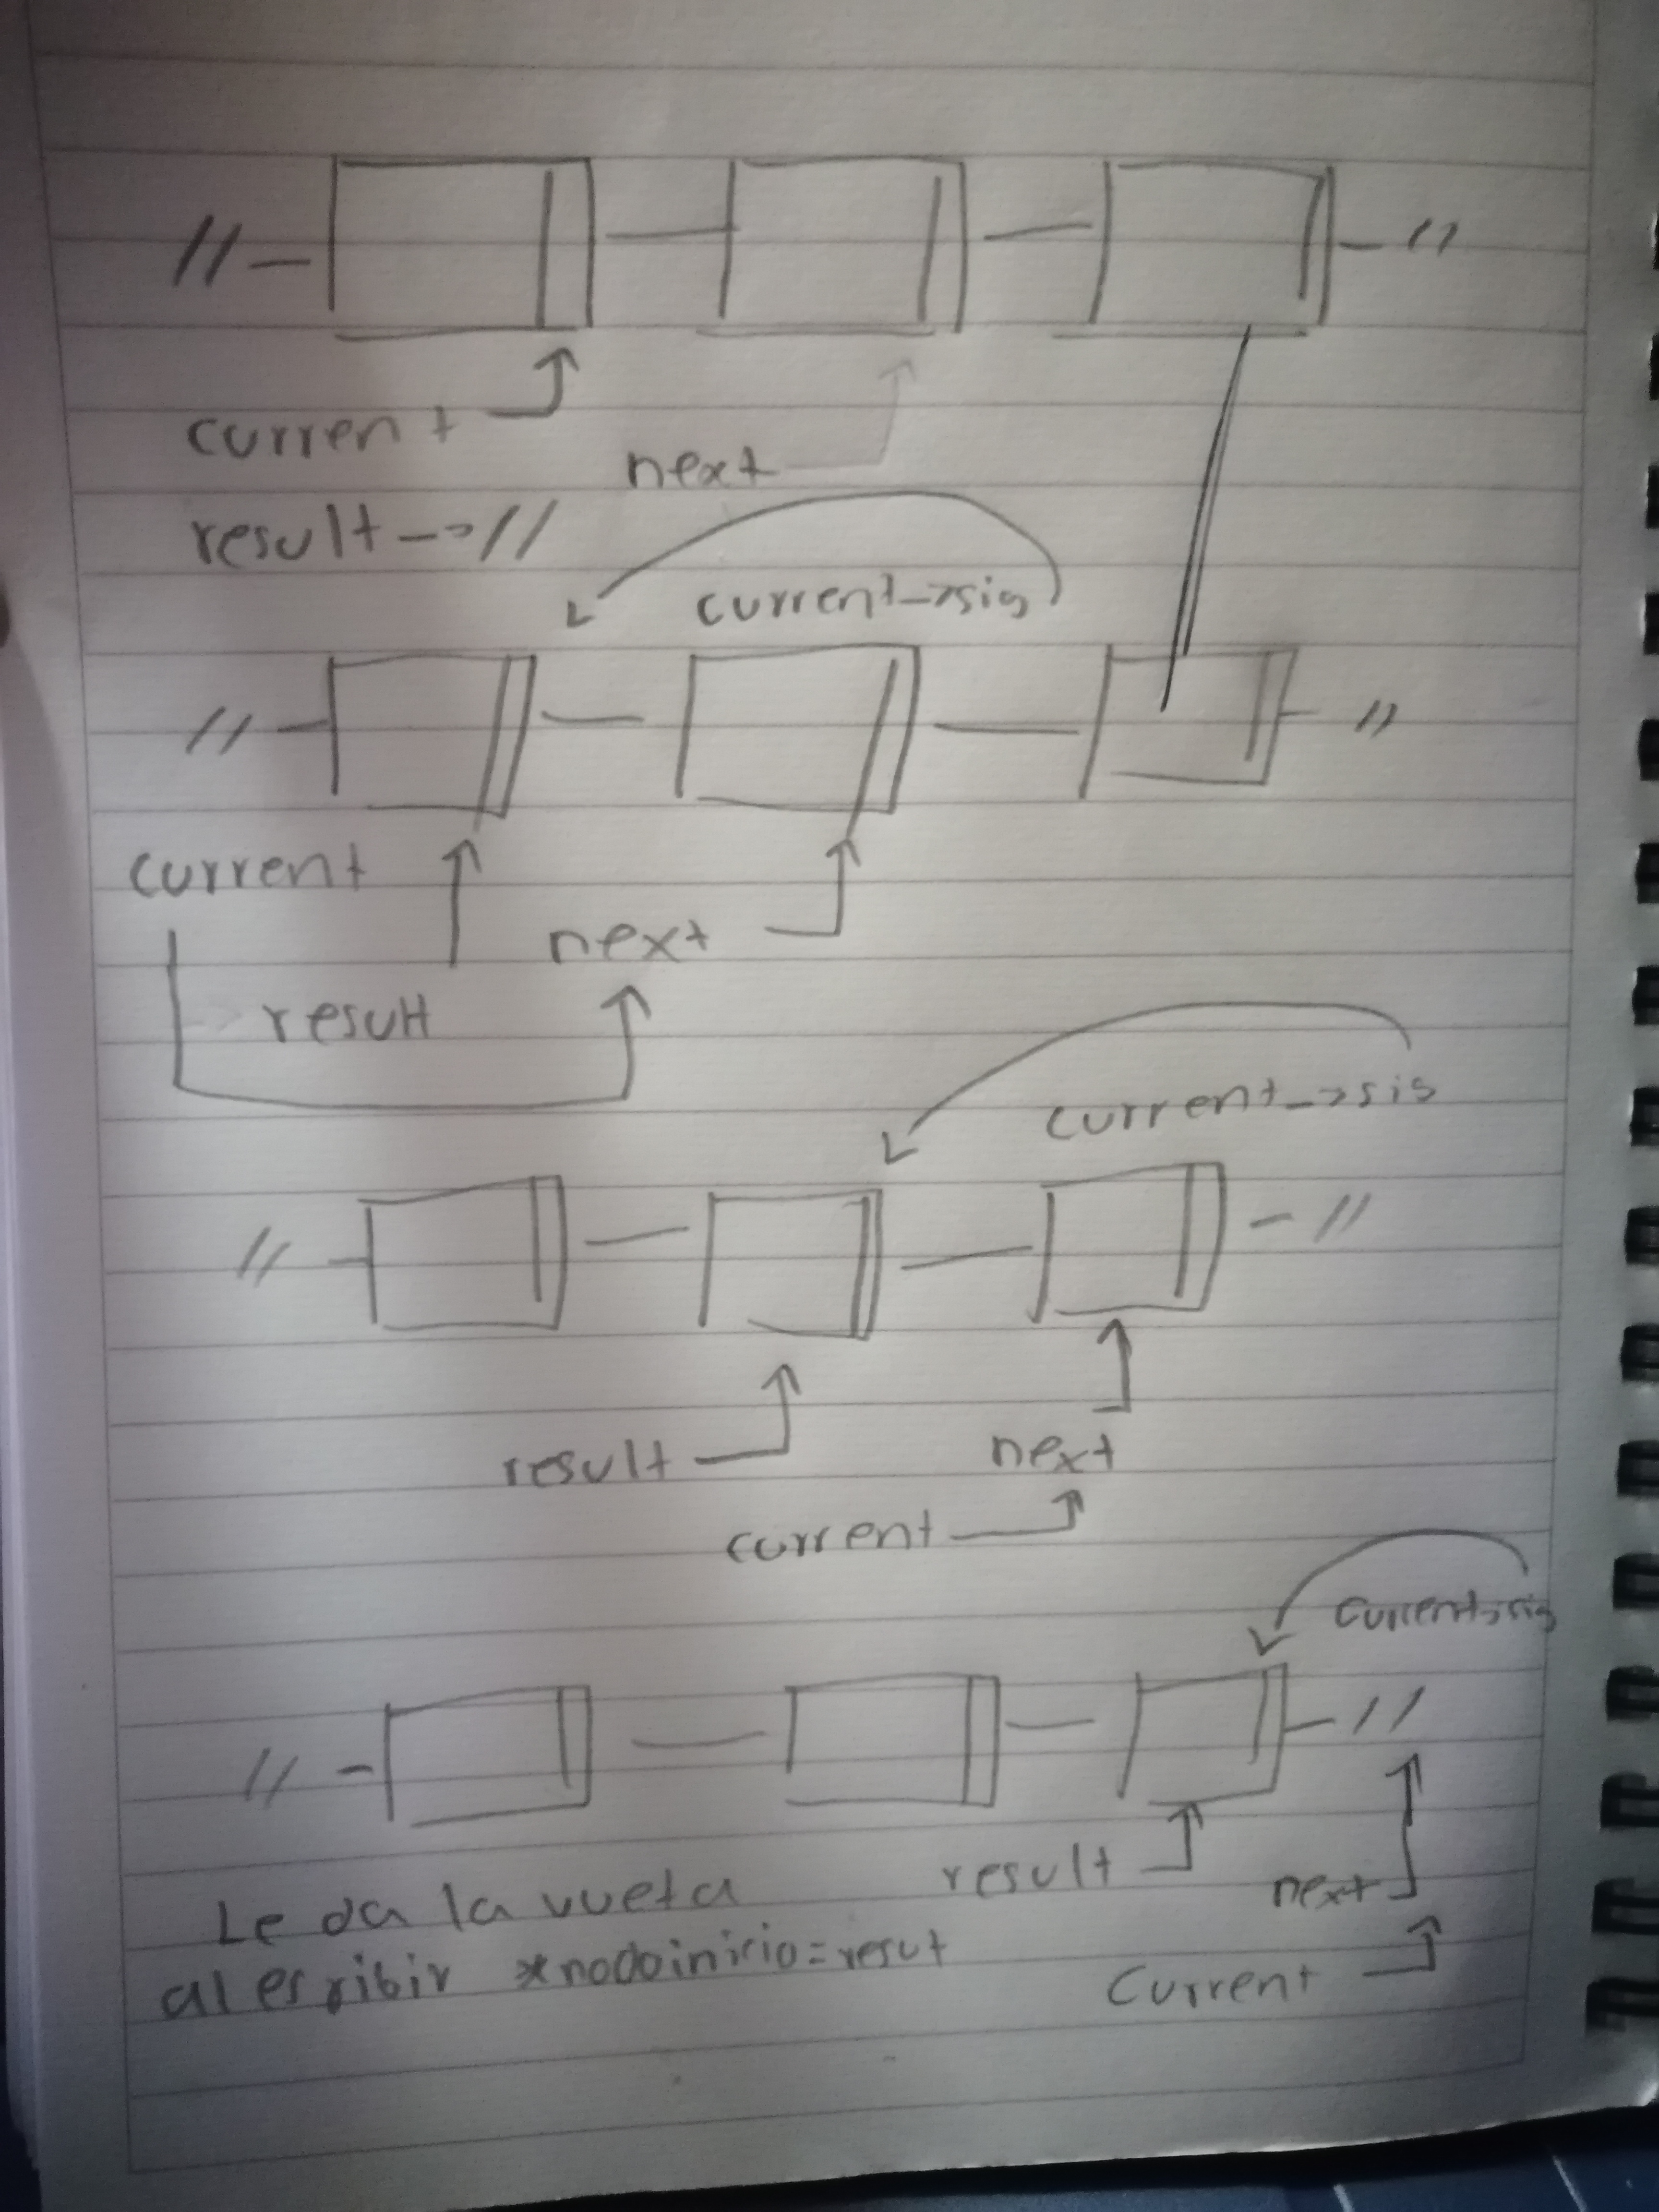 current
next
result -->//
current->sig
current
next
result
current->sis
result
next
current
current->sig
result
next
Le da la vueta
al esribir *nodoinicio=resut
Current